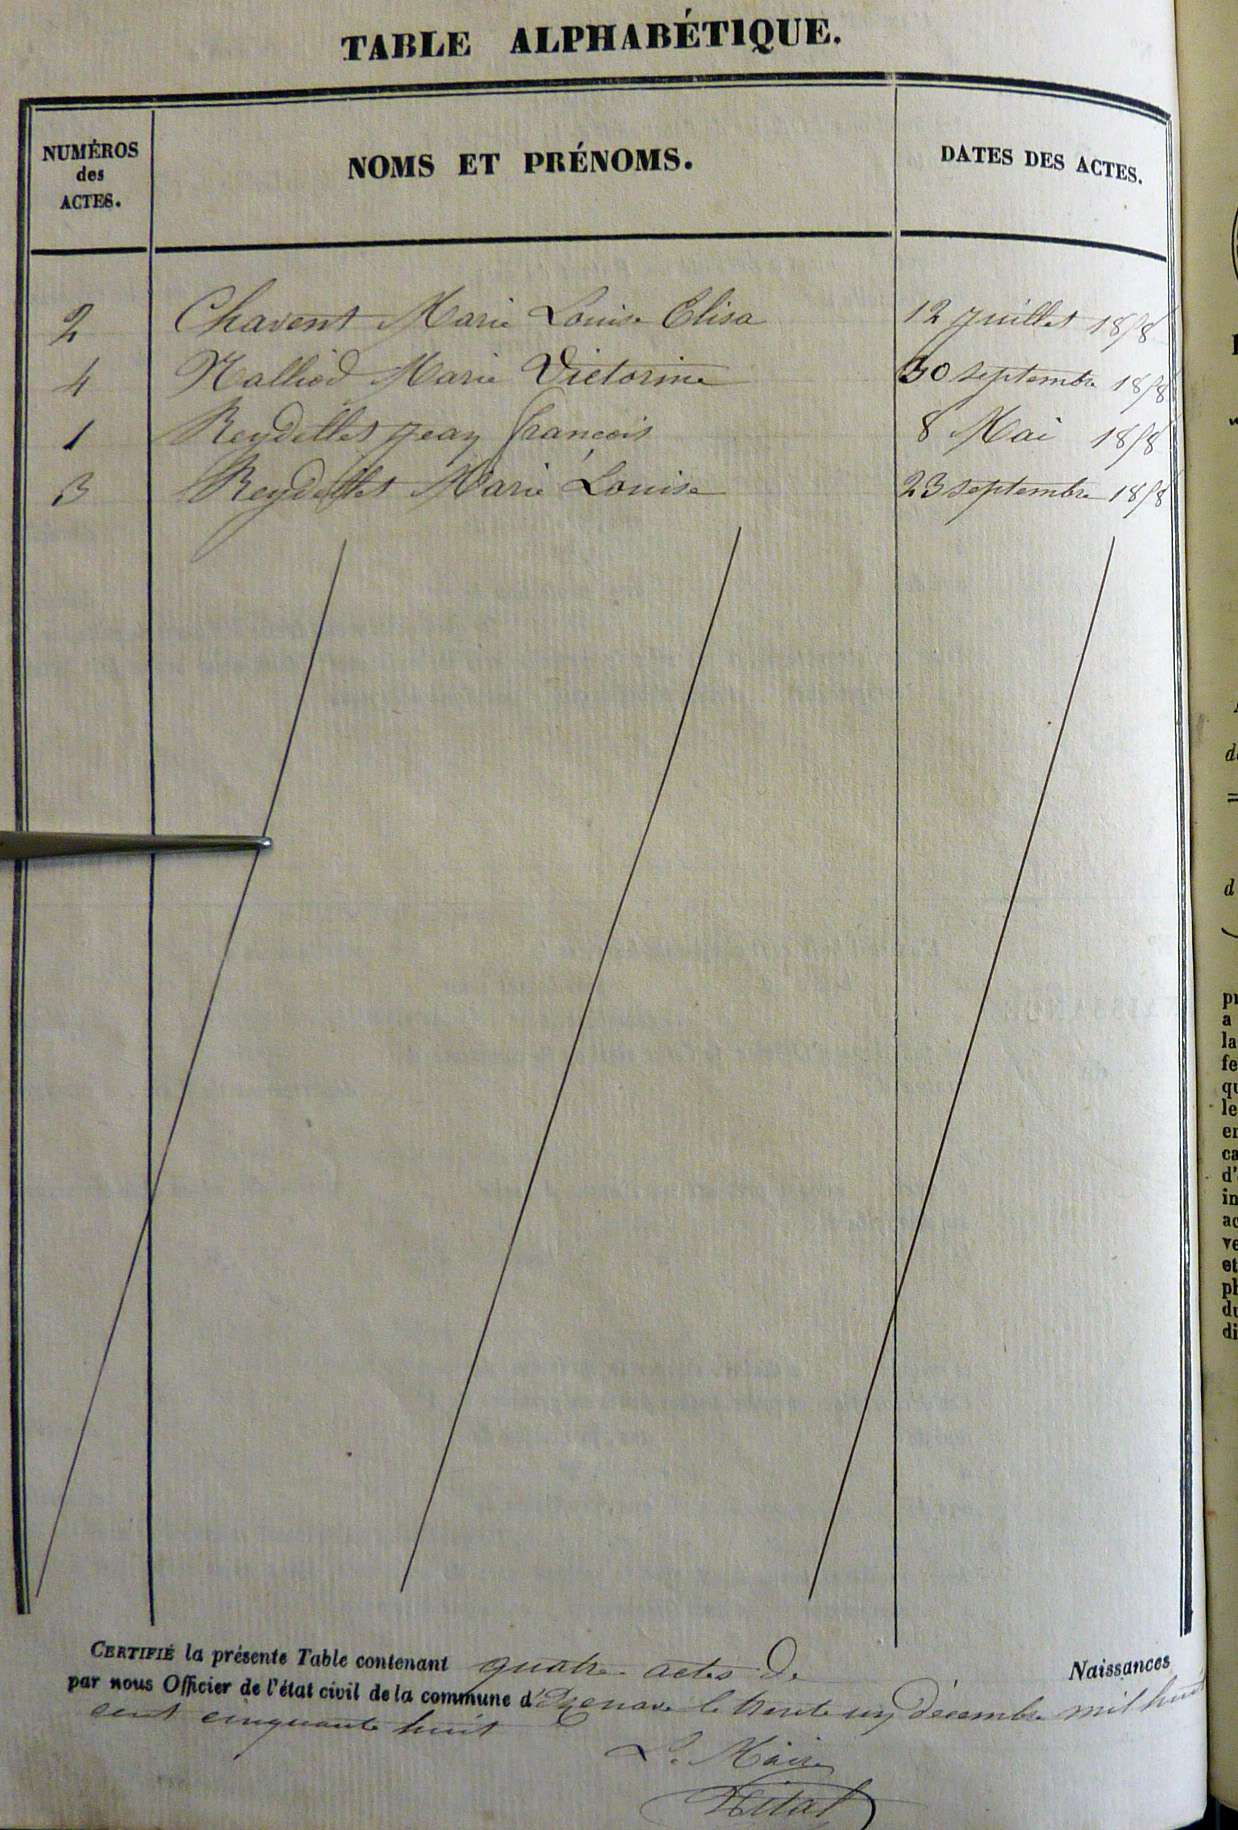 TABLE ALPHABÉTIQUE.
NUMÉROS
des
ACTES.
NOMS ET PRÉNOMS.
DATES DES ACTES.
2 Chavent Marie Louise Elisa 12 juillet 1858
4 Nallied Marie Victorine 30 septembre 1858
1 Reydellet jean françois 8 Mai 1858
3 Reydellet Marie Louise 23 septembre 1858
CERTIFIÉ la présente Table contenant quatre actes de Naissances
par nous Officier de l'état civil de la commune d'Izenave le trente un décembre mil huit
cent cinquante huit
Le Maire